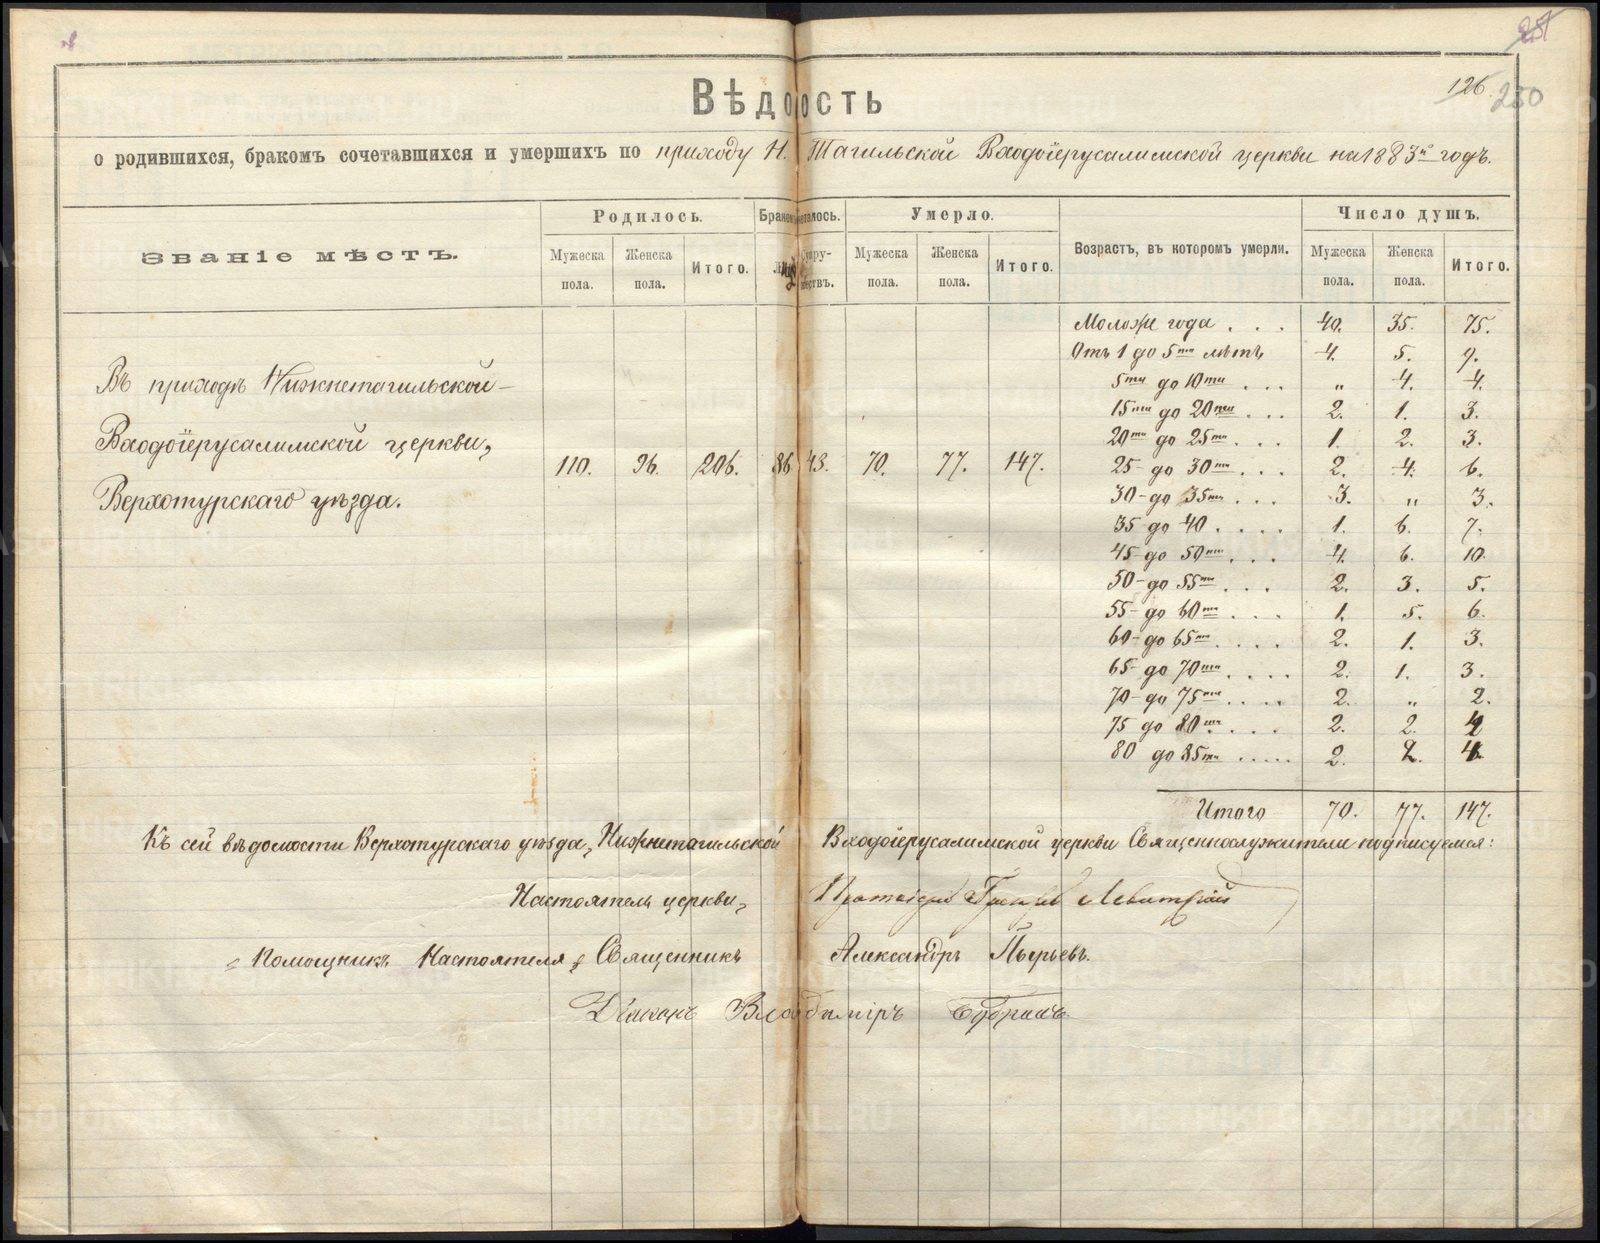 126 250
Вѣдомость
о родившихся, бракомъ сочетавшихся и умершихъ по приходу Н. Тагильской Входоіерусалимской церкви на 1883й годъ.
Званіе мѣстъ. Родилось. Умерло. Возрастъ, въ которомъ умерли. Число душъ.
Мужеска пола. Женска пола. Итого. Мужеска пола. Женска пола. Итого. Мужеска пола. Женска пола. Итого.
Моложе года . . . 40. 35. 75.
Отъ 1 до 5ти лѣтъ 4. 5. 9.
Въ приходѣ Нижнетагильской
5ти до 10ти . . . „ 4. 4.
15ти до 20ти . . . 2. 1. 3.
Входоіерусалимской церкви,
20ти до 25ти . . . 1. 2. 3.
110. 96. 206. 86 43. 70. 77. 147.
25- до 30ти . . . 2. 4. 6.
Верхотурскаго уѣзда.
30- до 35ти . . . 3. „ 3.
35 до 40 . . . . 1. 6. 7.
45- до 50ти . . . 4. 6. 10.
50- до 55ти . . . 2. 3. 5.
55- до 60ти . . . 1. 5. 6.
60- до 65ти . . . . 2. 1. 3.
65- до 70ти . . . . 2. 1. 3.
70- до 75ти . . . . 2. „ 2.
75 до 80ти . . . . 2. 2. 4
80 до 85ти . . . . . 2. 2. 4.
Итого 70. 77. 147.
Къ сей вѣдомости Верхотурскаго уѣзда, Нижнетагильской Входоіерусалимской церкви Священнослужители подписуемся:
Настоятель церкви, Протоіерей Левитскій
Помощникъ Настоятеля, Священникъ Александръ Пырьевъ.
Діаконъ Владиміръ